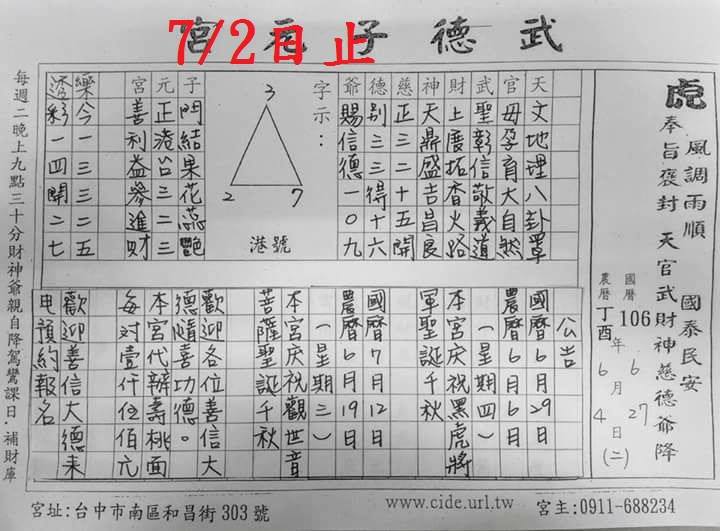 武德子元宮
7/2日止
虎
奉旨褒封 天官武財神慈德爺降
風調雨順 國泰民安
國曆 106 年 6 月 27 日(二)
農曆 丁酉 6 4
天文地理八卦罩
官母孕育大自然
武聖彰信敬義道
財上慶拓香火路
神天鼎盛吉昌良
慈正三二十五開
德別三三得十六
爺賜信德一0九
字示:
3
2 7
港號
子門結果花蕊艷
元正港三二三
宮善利益參進財
樂今一三三二五
透彩一四開二七
公告
國曆6月29日
農曆6月6日
(一星期四)
本宮庆祝黑虎將
軍聖誕千秋
國曆7月12日
農曆6月19日
(一星期三)
本宮庆祝觀世音
菩薩聖誕千秋
歡迎各位善信大
德隨喜功德。
本宮代辦壽桃面
每对壹仟伍佰元
歡迎善信大德來
电預約報名
每週二晚上九點三十分財神爺親自降駕鸞課日.補財庫
宮址:台中市南區和昌街 303 號
www.cide.url.tw
宮主:0911-688234